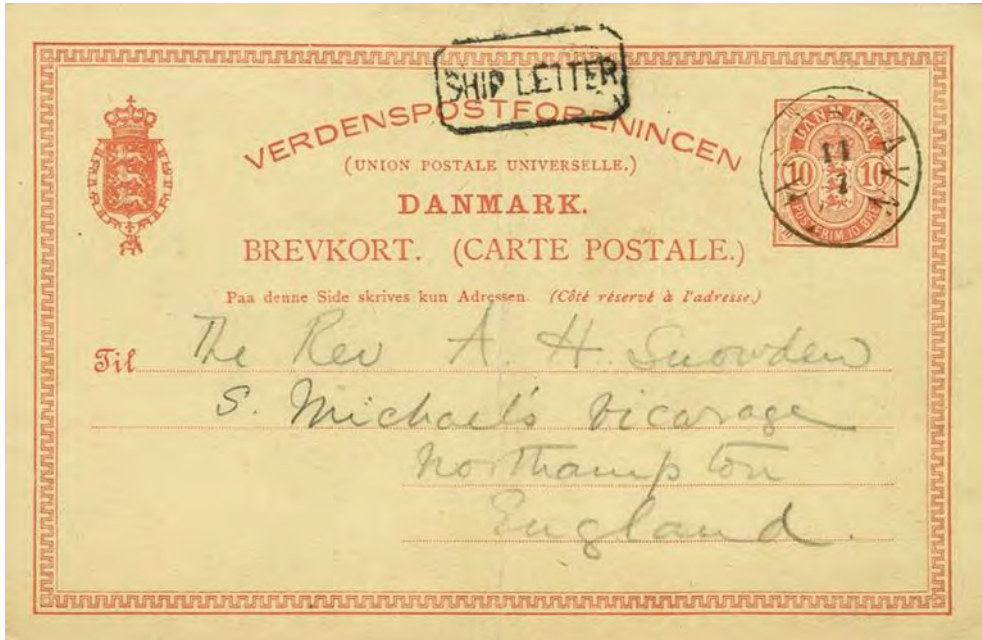 SHIP LETTER
VERDENSPOSTFORENINGEN
(UNION POSTALE UNIVERSELLE.)
DANMARK.
BREVKORT. (CARTE POSTALE.)
Paa denne Side skrives kun Adressen. (Côté réservé à l'adresse.)
DANMARK
10 10
POSTFRIM. 10 ØRE
11
Til The Rev A. H. Snowden
S. Michael's Vicarage
Northampton
England.